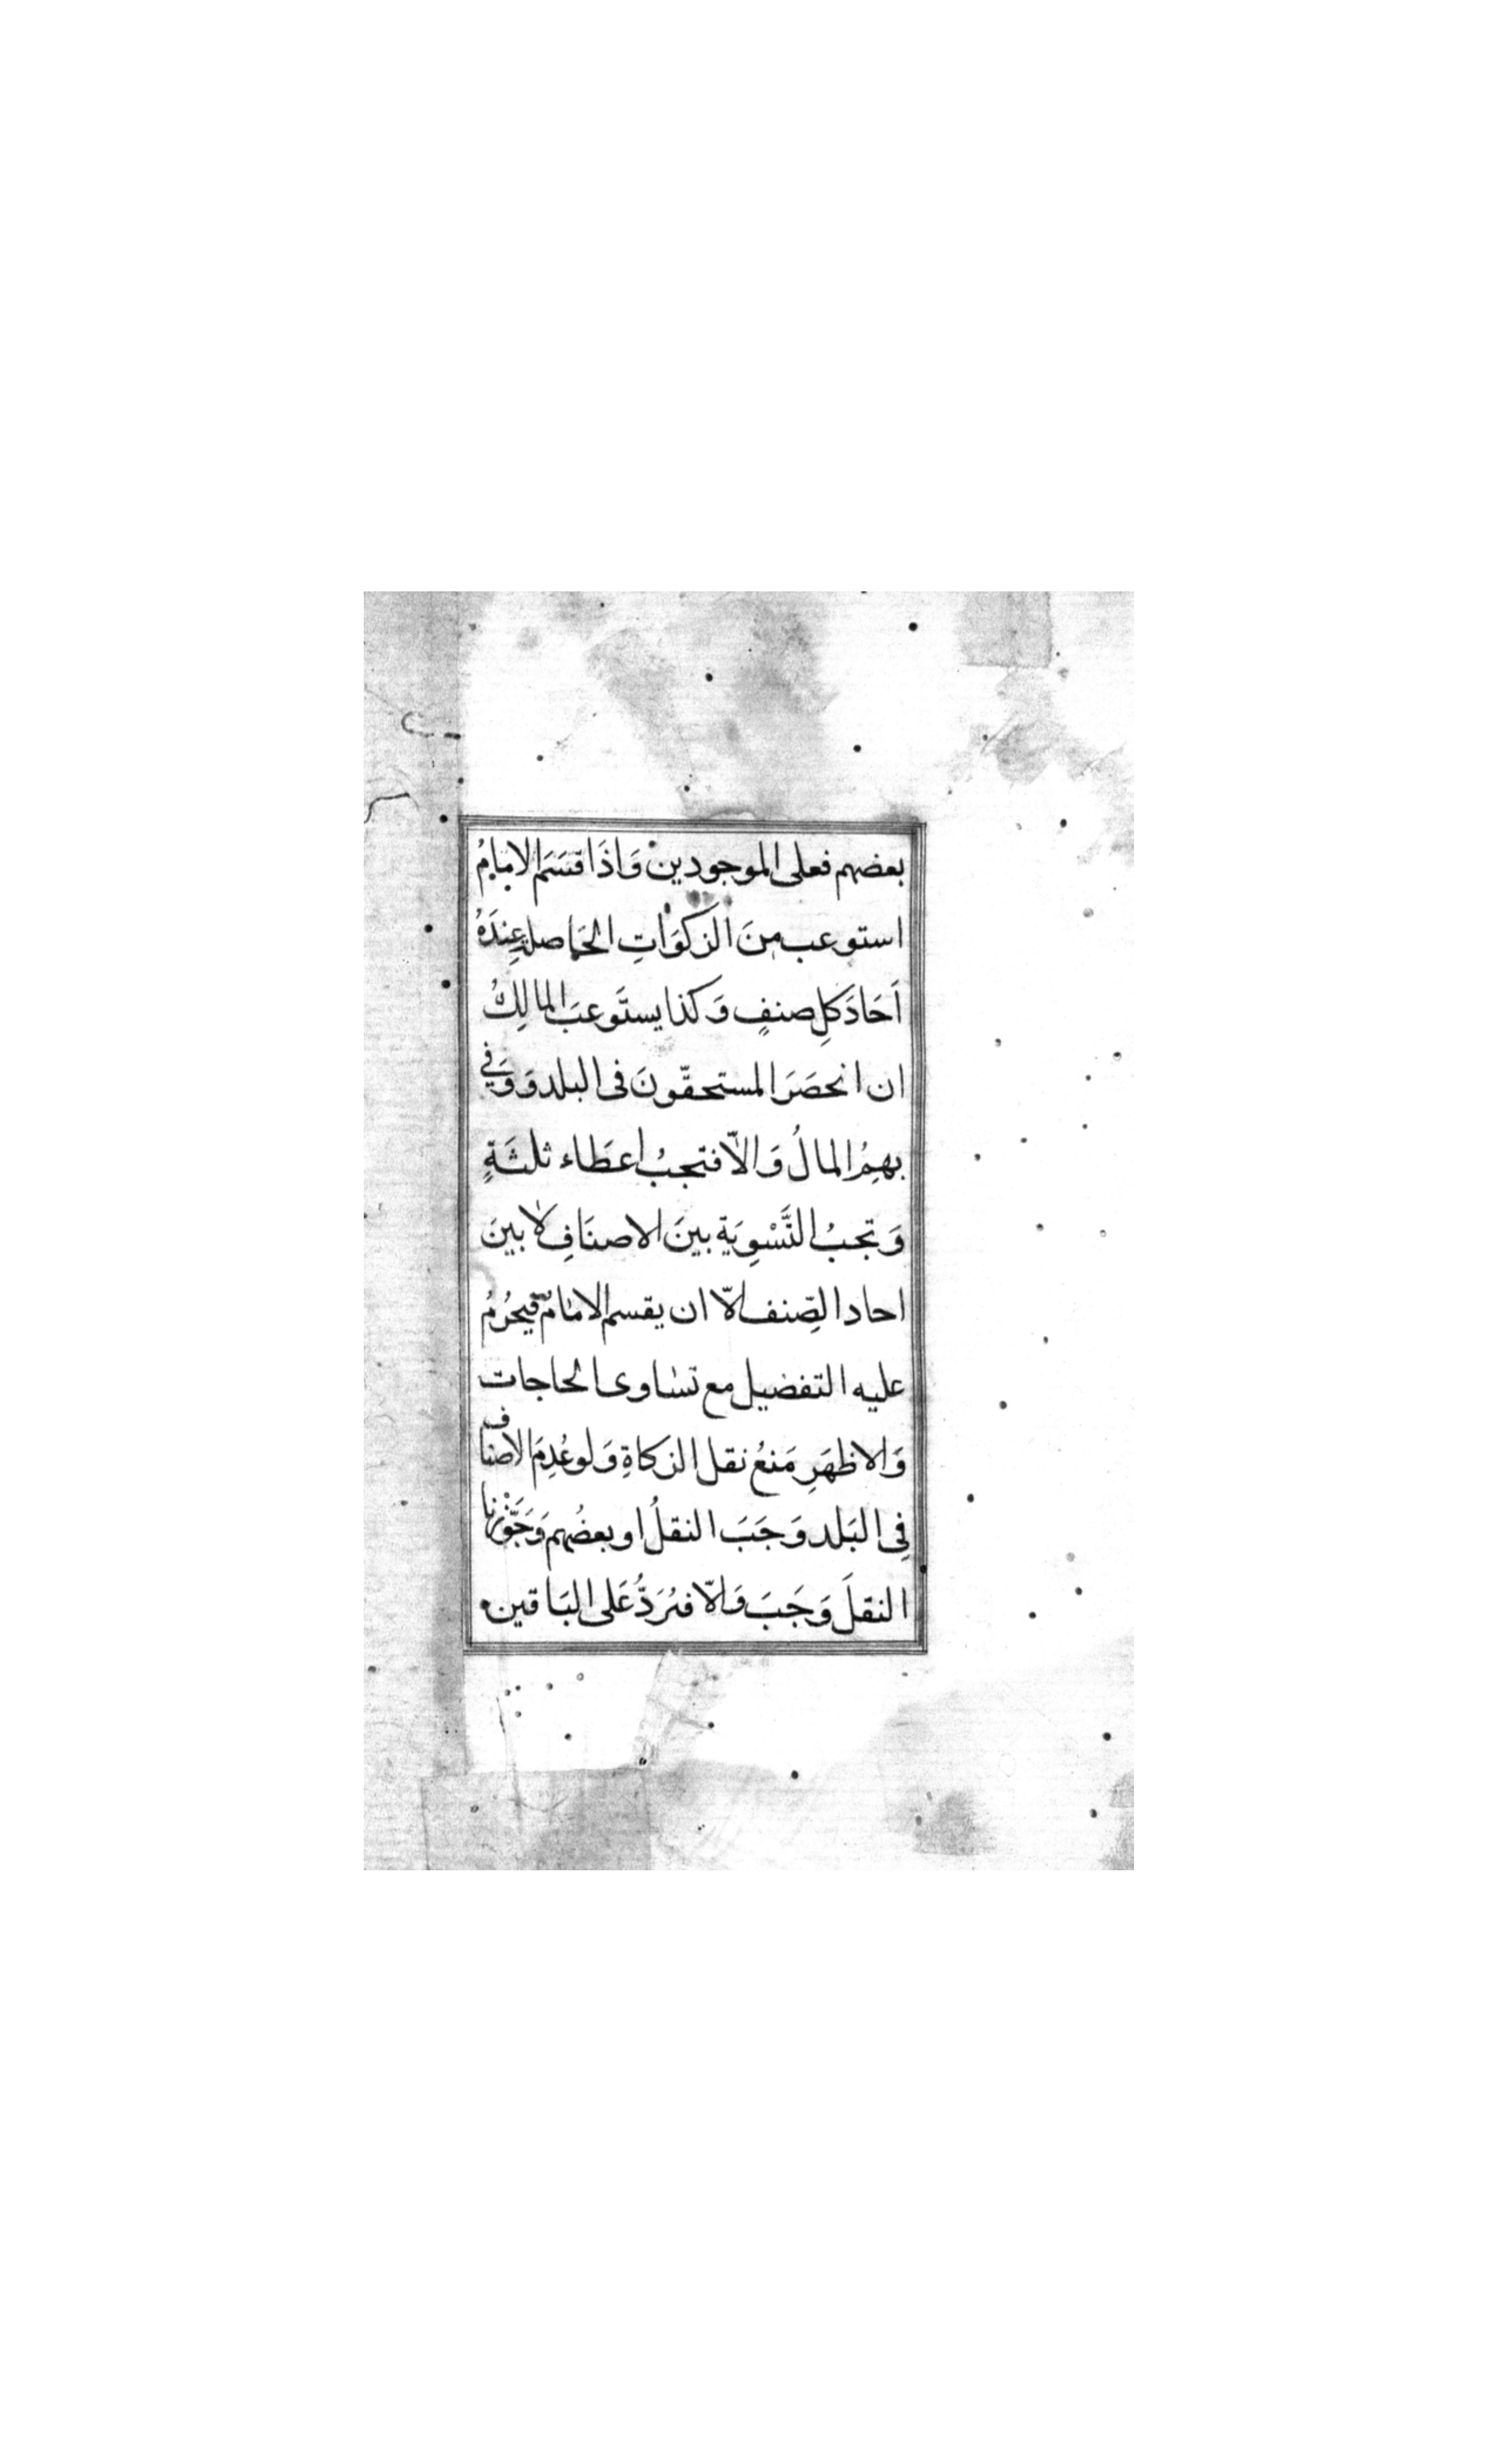 بعضهم فعلى الموجودين وَاذَا قَسَمَ الامامُ
استوعب منَ الزكوَاتِ الحَاصلة عِندَهُ
اَحَادَ كلِ صنفٍ وَكذا يستَوعبَ المالِكُ
ان انحصَرَ المستحقّونَ فى البلد وَوَفي
بهِمُ المالُ وَالاّ فتجبُ اعطَاء ثلثَةٍ
وَتجبُ التَّسْوِيَة بينَ الاصنَافِ لا بينَ
احاد الصِّنف الاّ ان يقسم الامامُ فيحرُمُ
عليه التفضيل مع تسَاوى الحاجات
وَالاظهَرِ مَنعُ نقل الزكاةِ وَلو عُدِمَ الاصناف
فِى البَلد وَجَبَ النقلُ او بعضُهم وَجَوَّزنا
النقلَ وَجَبَ وَالاّ فيُرَدُّ عَلى البَاقين